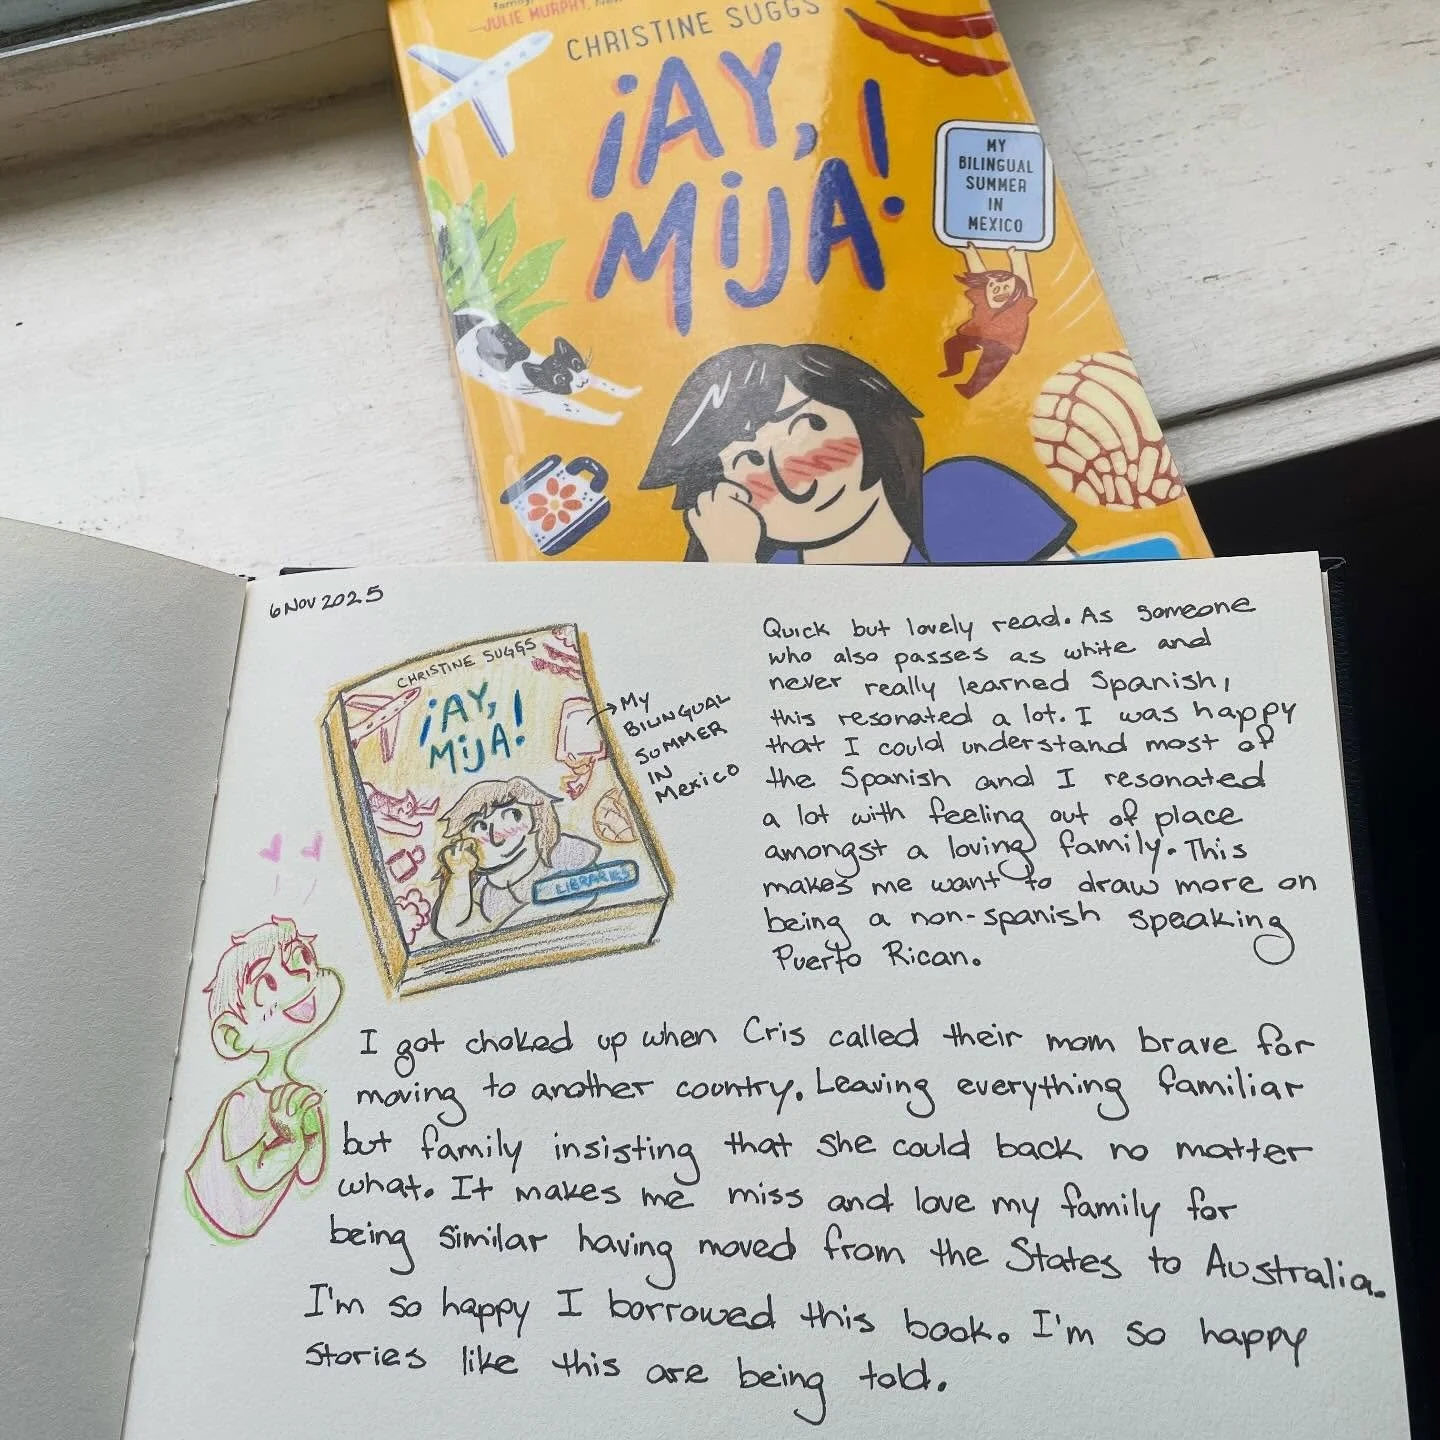 JULIE MURPHY,
CHRISTINE SUGGS
¡AY,
MIJA!
MY
BILINGUAL
SUMMER
IN
MEXICO
6 NOV 2025
CHRISTINE SUGGS
¡AY,
MIJA!
My
BILINGUAL
SUMMER
IN
Mexico
LIBRARIES
Quick but lovely read. As someone
who also passes as white and
never really learned Spanish,
this resonated a lot. I was happy
that I could understand most of
the Spanish and I resonated
a lot with feeling out of place
amongst a loving family. This
makes me want to draw more on
being a non-spanish speaking
Puerto Rican.
I got choked up when Cris called their mom brave for
moving to another country. Leaving everything familiar
but family insisting that she could back no matter
what. It makes me miss and love my family for
being similar having moved from the States to Australia.
I'm so happy I borrowed this book. I'm so happy
stories like this are being told.